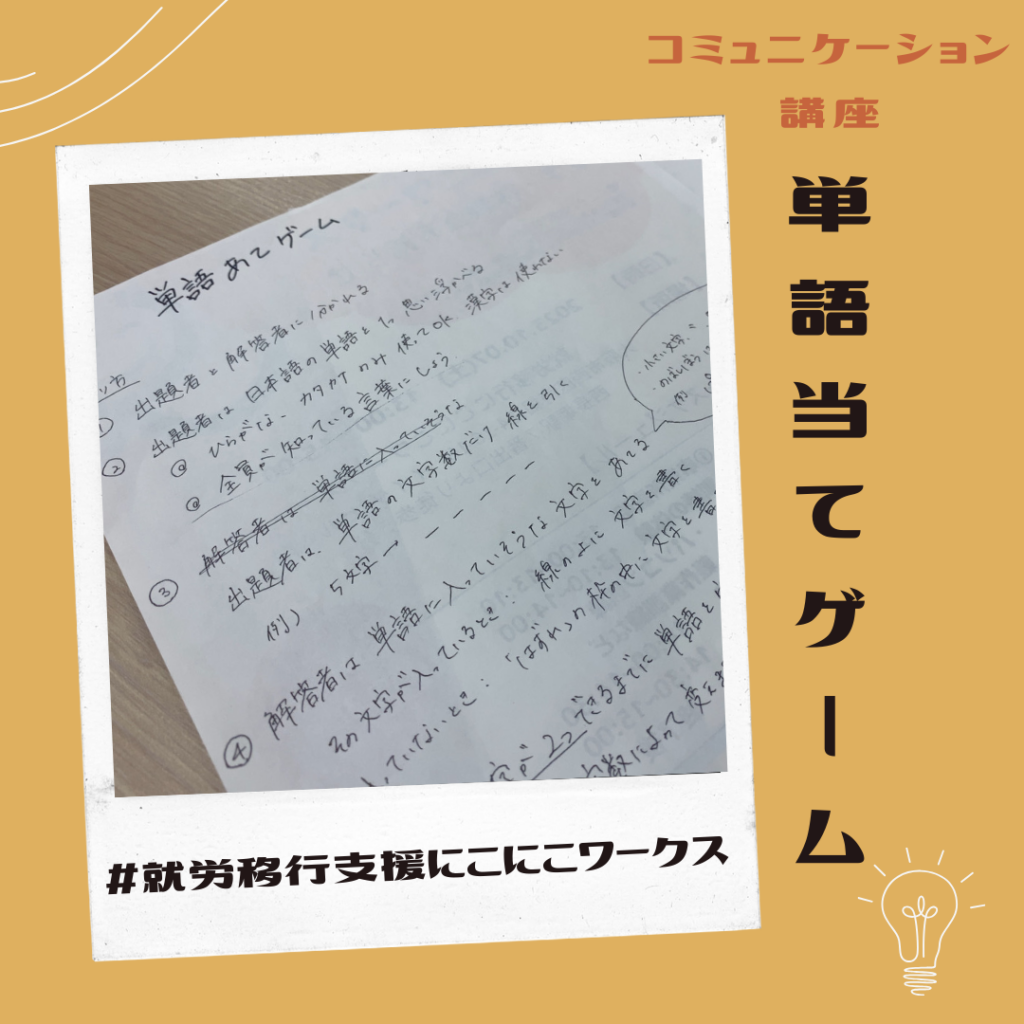 コミュニケーション
講座
単語当てゲーム
単語あてゲーム
① 出題者と解答者に分かれる
② 出題者は日本語の単語を1つ思い浮かべる
◎ ひらがな、カタカナのみ使ってOK 漢字は使わない
◎ 全員が知っている言葉にしよう
解答者は 単語に入っていそうな
③ 出題者は、単語の文字数だけ線を引く
例) 5文字→
④ 解答者は単語に入っていそうな文字をあてる
その文字が入っているとき: 線の上に文字を書く
っていないとき: 「はずれ」の枠の中に文字を書
できるまでに 単語を
数によって変え
・小さい文字
#就労移行支援にこにこワークス